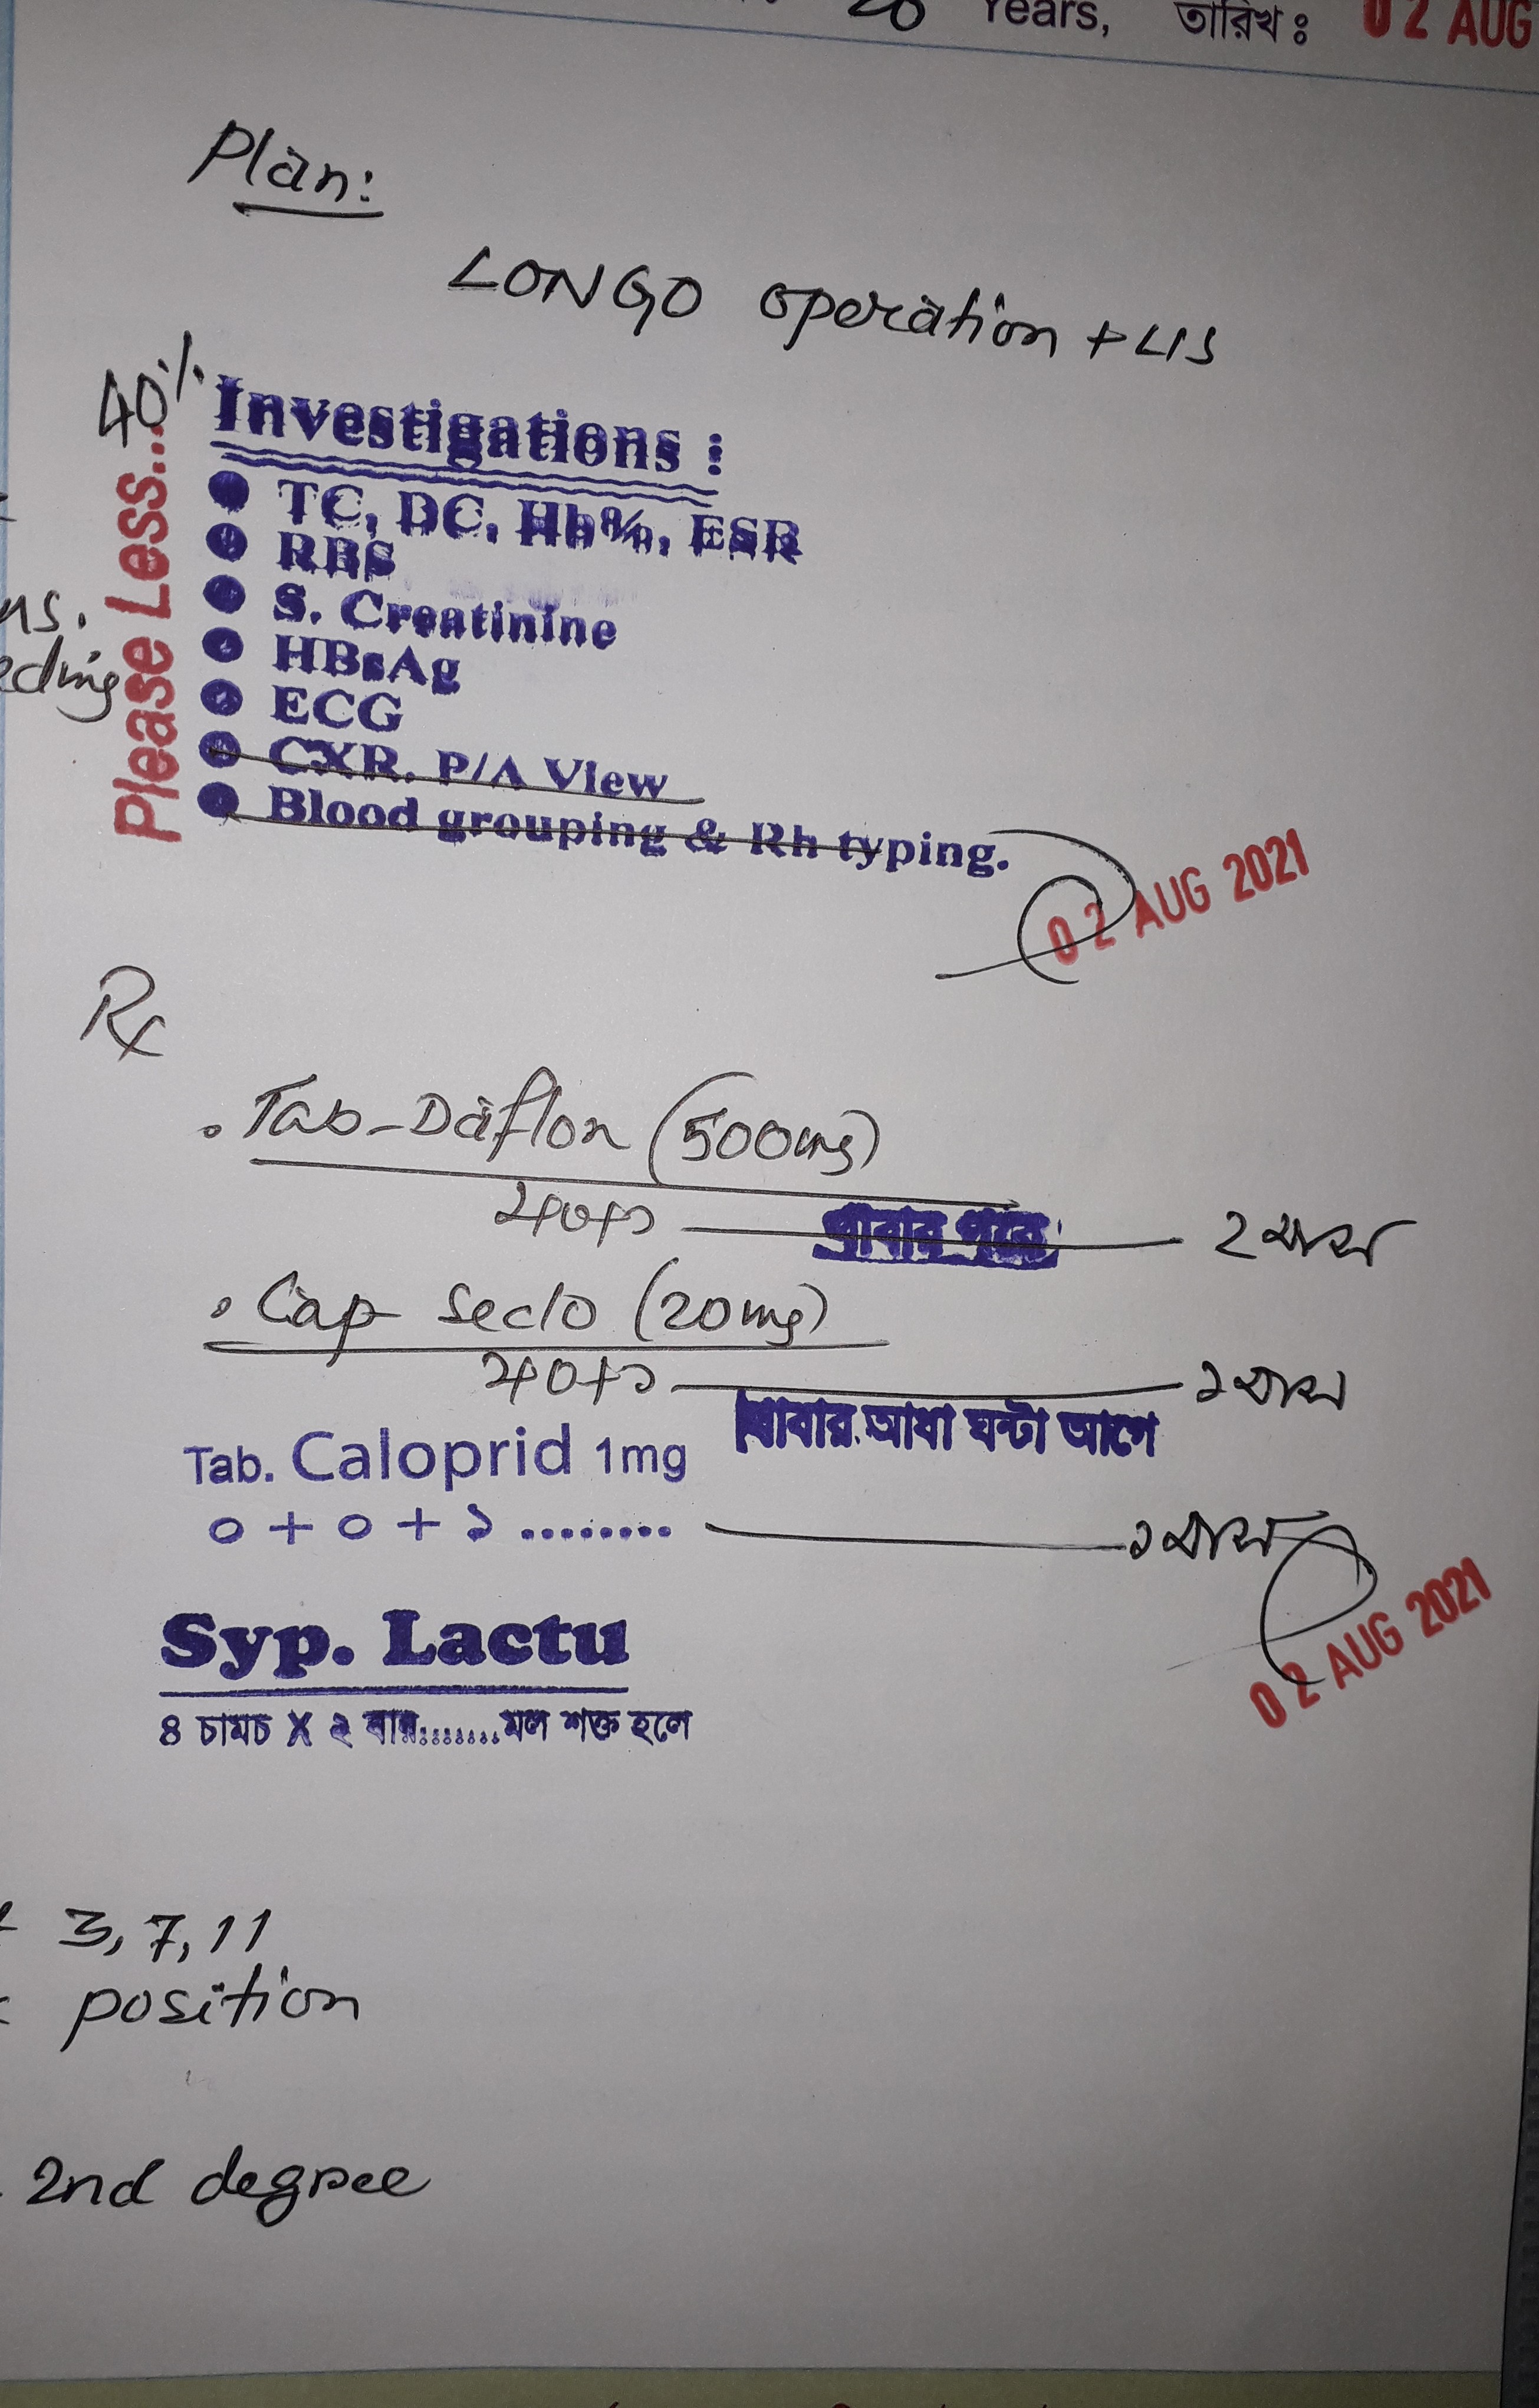 Years, তারিখঃ 02 AUG
Plan:
LONGO operation + LIS
40%
Please Less...
Investigations :
TC, DC, Hb%, ESR
RBS
S. Creatinine
HBsAg
ECG
CXR. P/A View
Blood grouping & Rh typing.
02 AUG 2021
Rx
. Tab-Daflon (500mg)
১+০+১ খাবার পরে ২ মাস
. Cap Seclo (20mg)
১+০+১ ১ মাস
খাবার আধা ঘন্টা আগে
Tab. Caloprid 1mg
০ + ০ + ১ ........ ১ মাস
02 AUG 2021
Syp. Lactu
৪ চামচ X ২ বার........মল শক্ত হলে
3, 7, 11
position
2nd degree